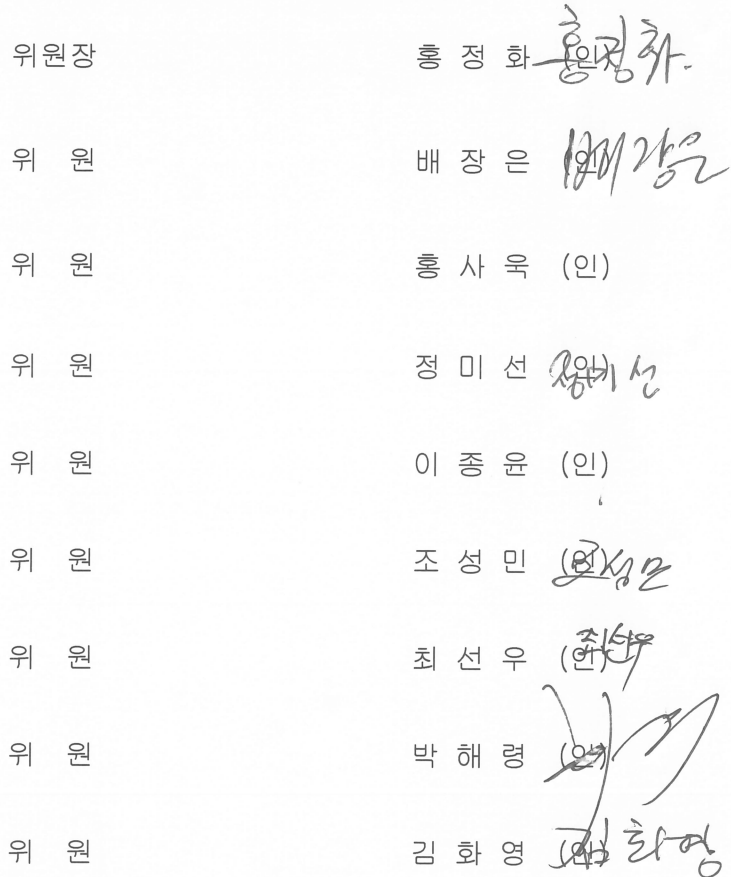 위원장 홍 정 화 (인) 홍정화
위 원 배 장 은 (인) 배장은
위 원 홍 사 욱 (인)
위 원 정 미 선 (인) 정미선
위 원 이 종 윤 (인)
위 원 조 성 민 (인) 조성민
위 원 최 선 우 (인) 최선우
위 원 박 해 령 (인)
위 원 김 화 영 (인) 김화영